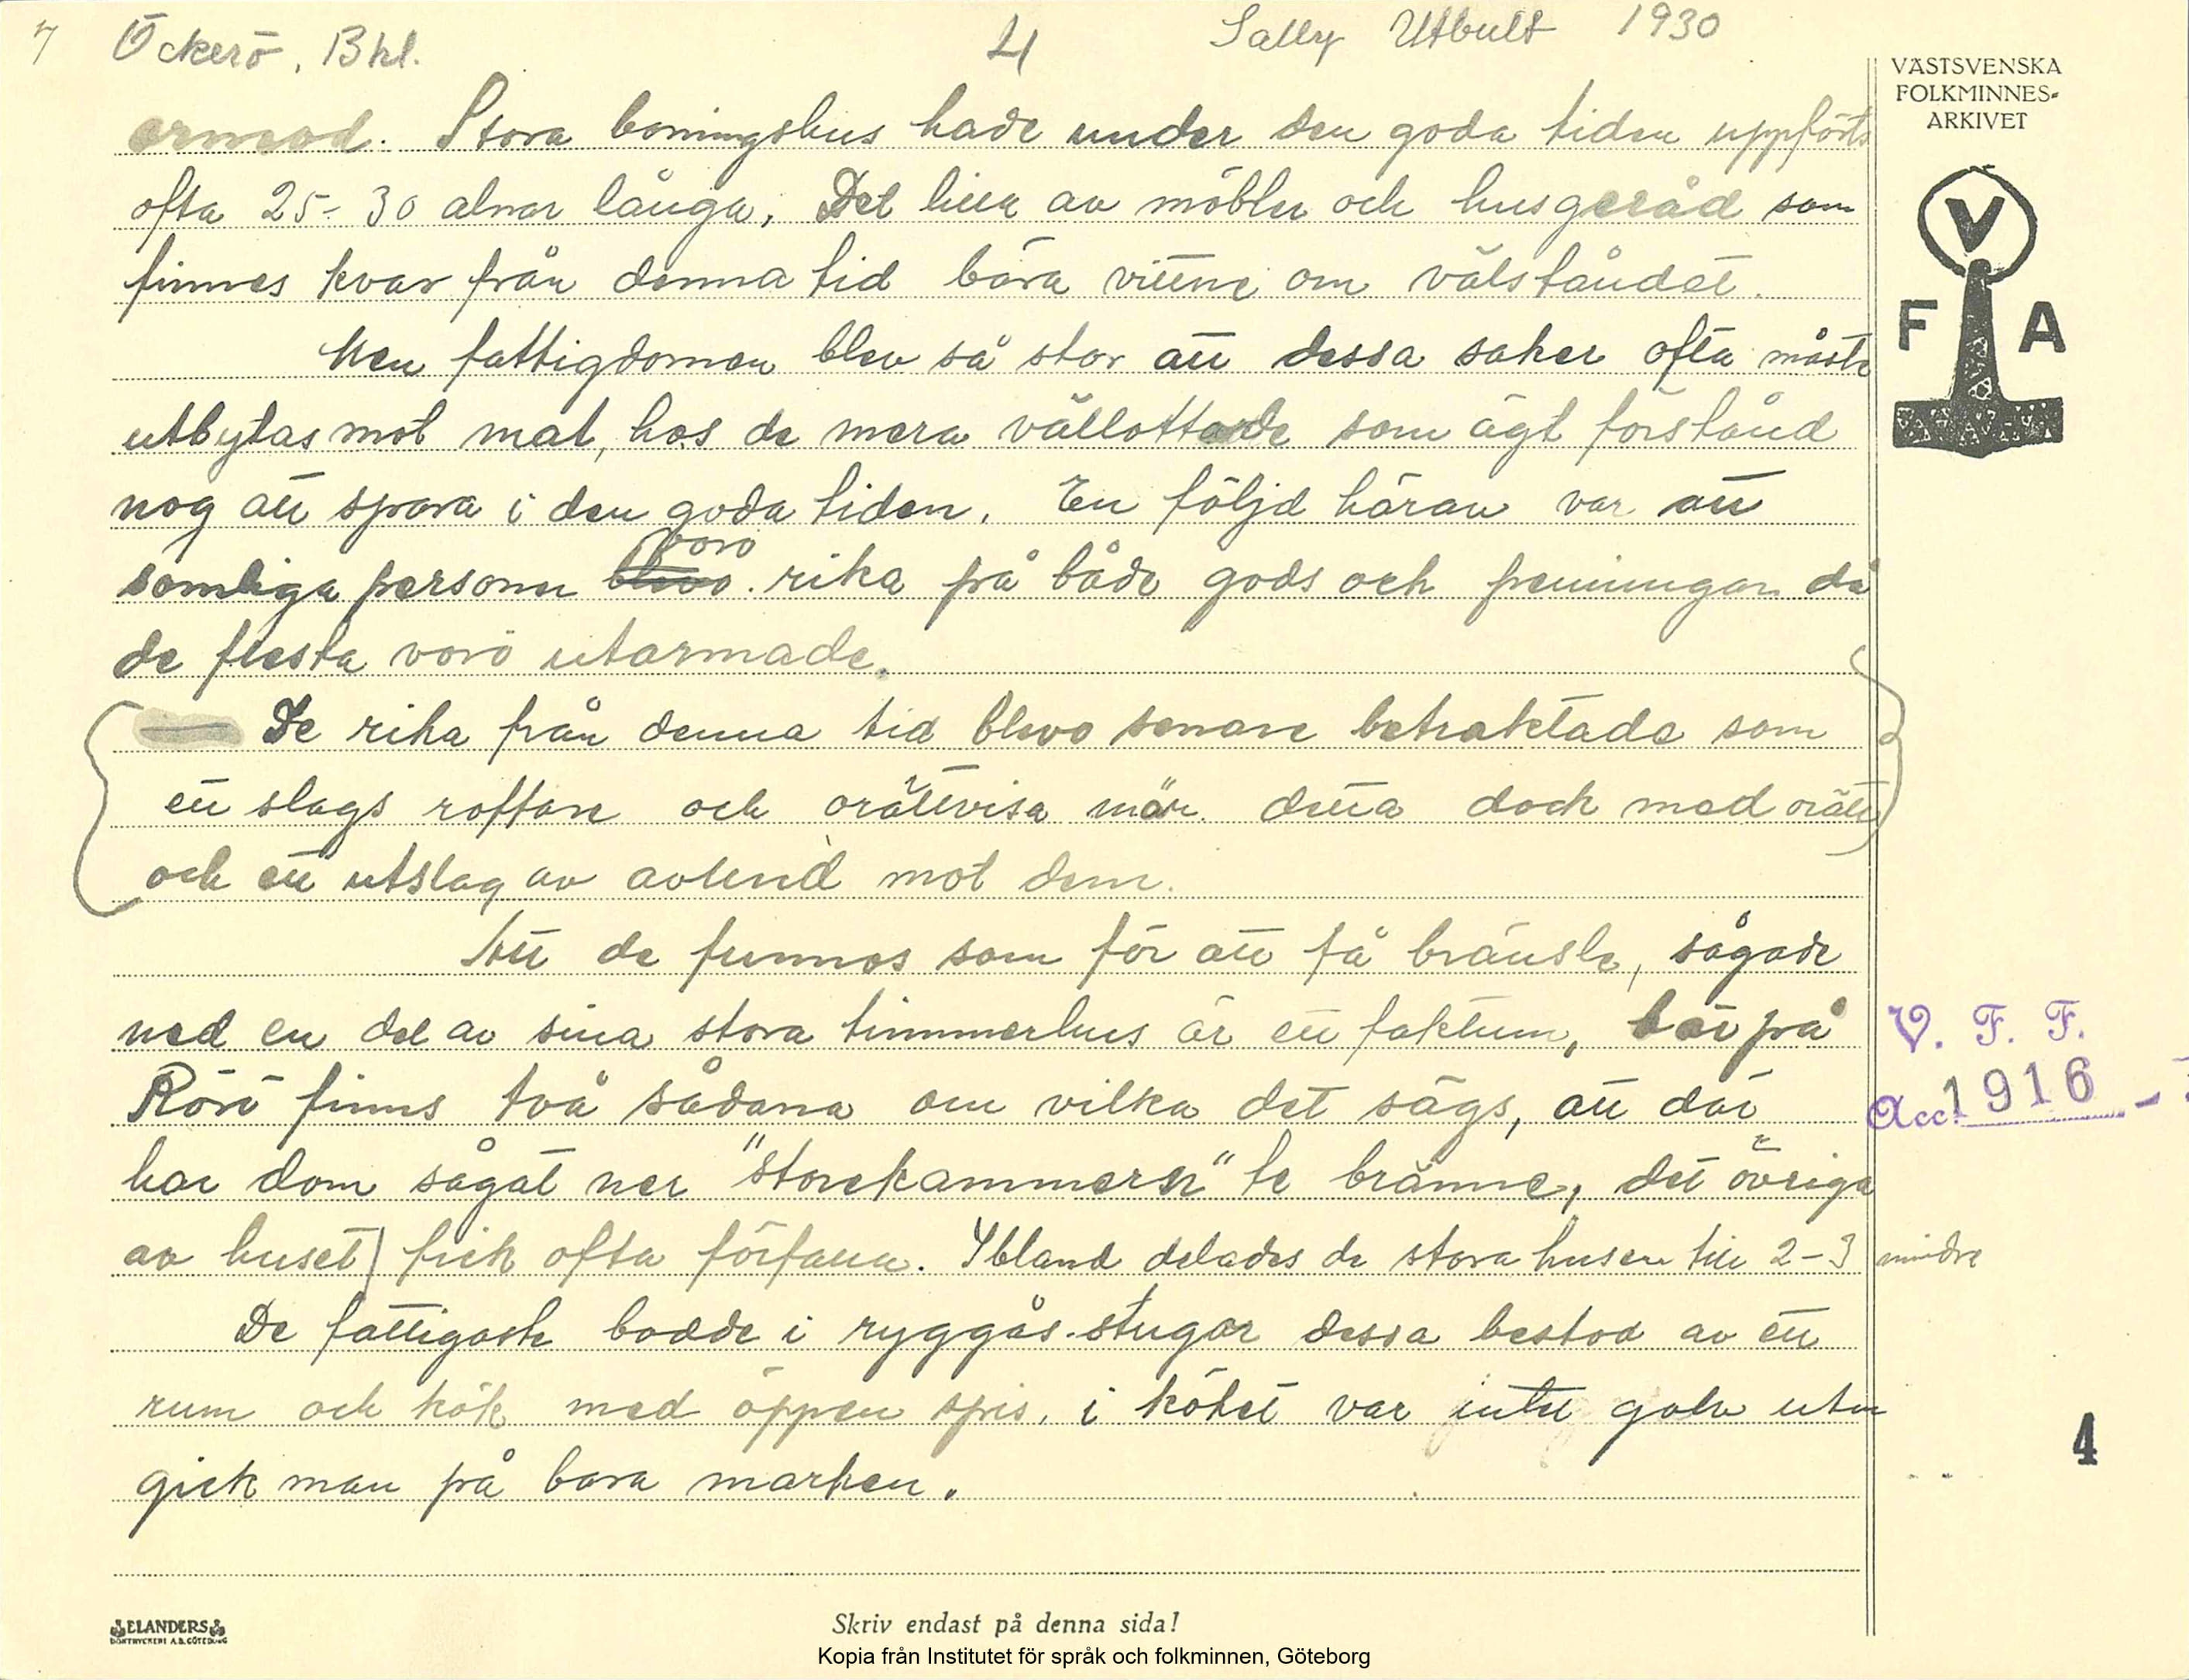 7 Öckerö, Bhl. 4 Sally Utbult 1930
VÄSTSVENSKA
FOLKMINNES-
ARKIVET
armod. Stora boningshus hade under den goda tiden uppförts
ofta 25-30 alnar långa. Det lilla av möbler och husgeråd som
finnes kvar från denna tid bära vittne om välståndet.
V
F A
Men fattigdomen blev så stor att dessa saker ofta måste
utbytas mot mat, hos de mera vällottade som ägt förstånd
nog att spara i den goda tiden. En följd härav var att
voro
somliga personer blevo rika på både gods och penningar då
de flesta voro utarmade.
— De rika från denna tid blevo senare betraktade som
ett slags roffare och orättvisa män. detta dock med orätt
och ett utslag av avund mot dem.
Att de funnos som för att få bränsle, sågade
ned en del av sina stora timmerhus är ett faktum, här på
V. F. F.
Rörö finns två sådana om vilka det sägs, att där
Acc. 1916 -
har dom sågat ner "storekammern" te bränne, det övriga
av huset fick ofta förfalla. Ibland delades de stora husen till 2-3 mindre
De fattigaste bodde i ryggås-stugor dessa bestod av ett
rum och kök med öppen spis, i köket var intet golv utan
4
gick man på bara marken.
ELANDERS
BOKTRYCKERI A.B. GÖTEBORG
Skriv endast på denna sida!
Kopia från Institutet för språk och folkminnen, Göteborg